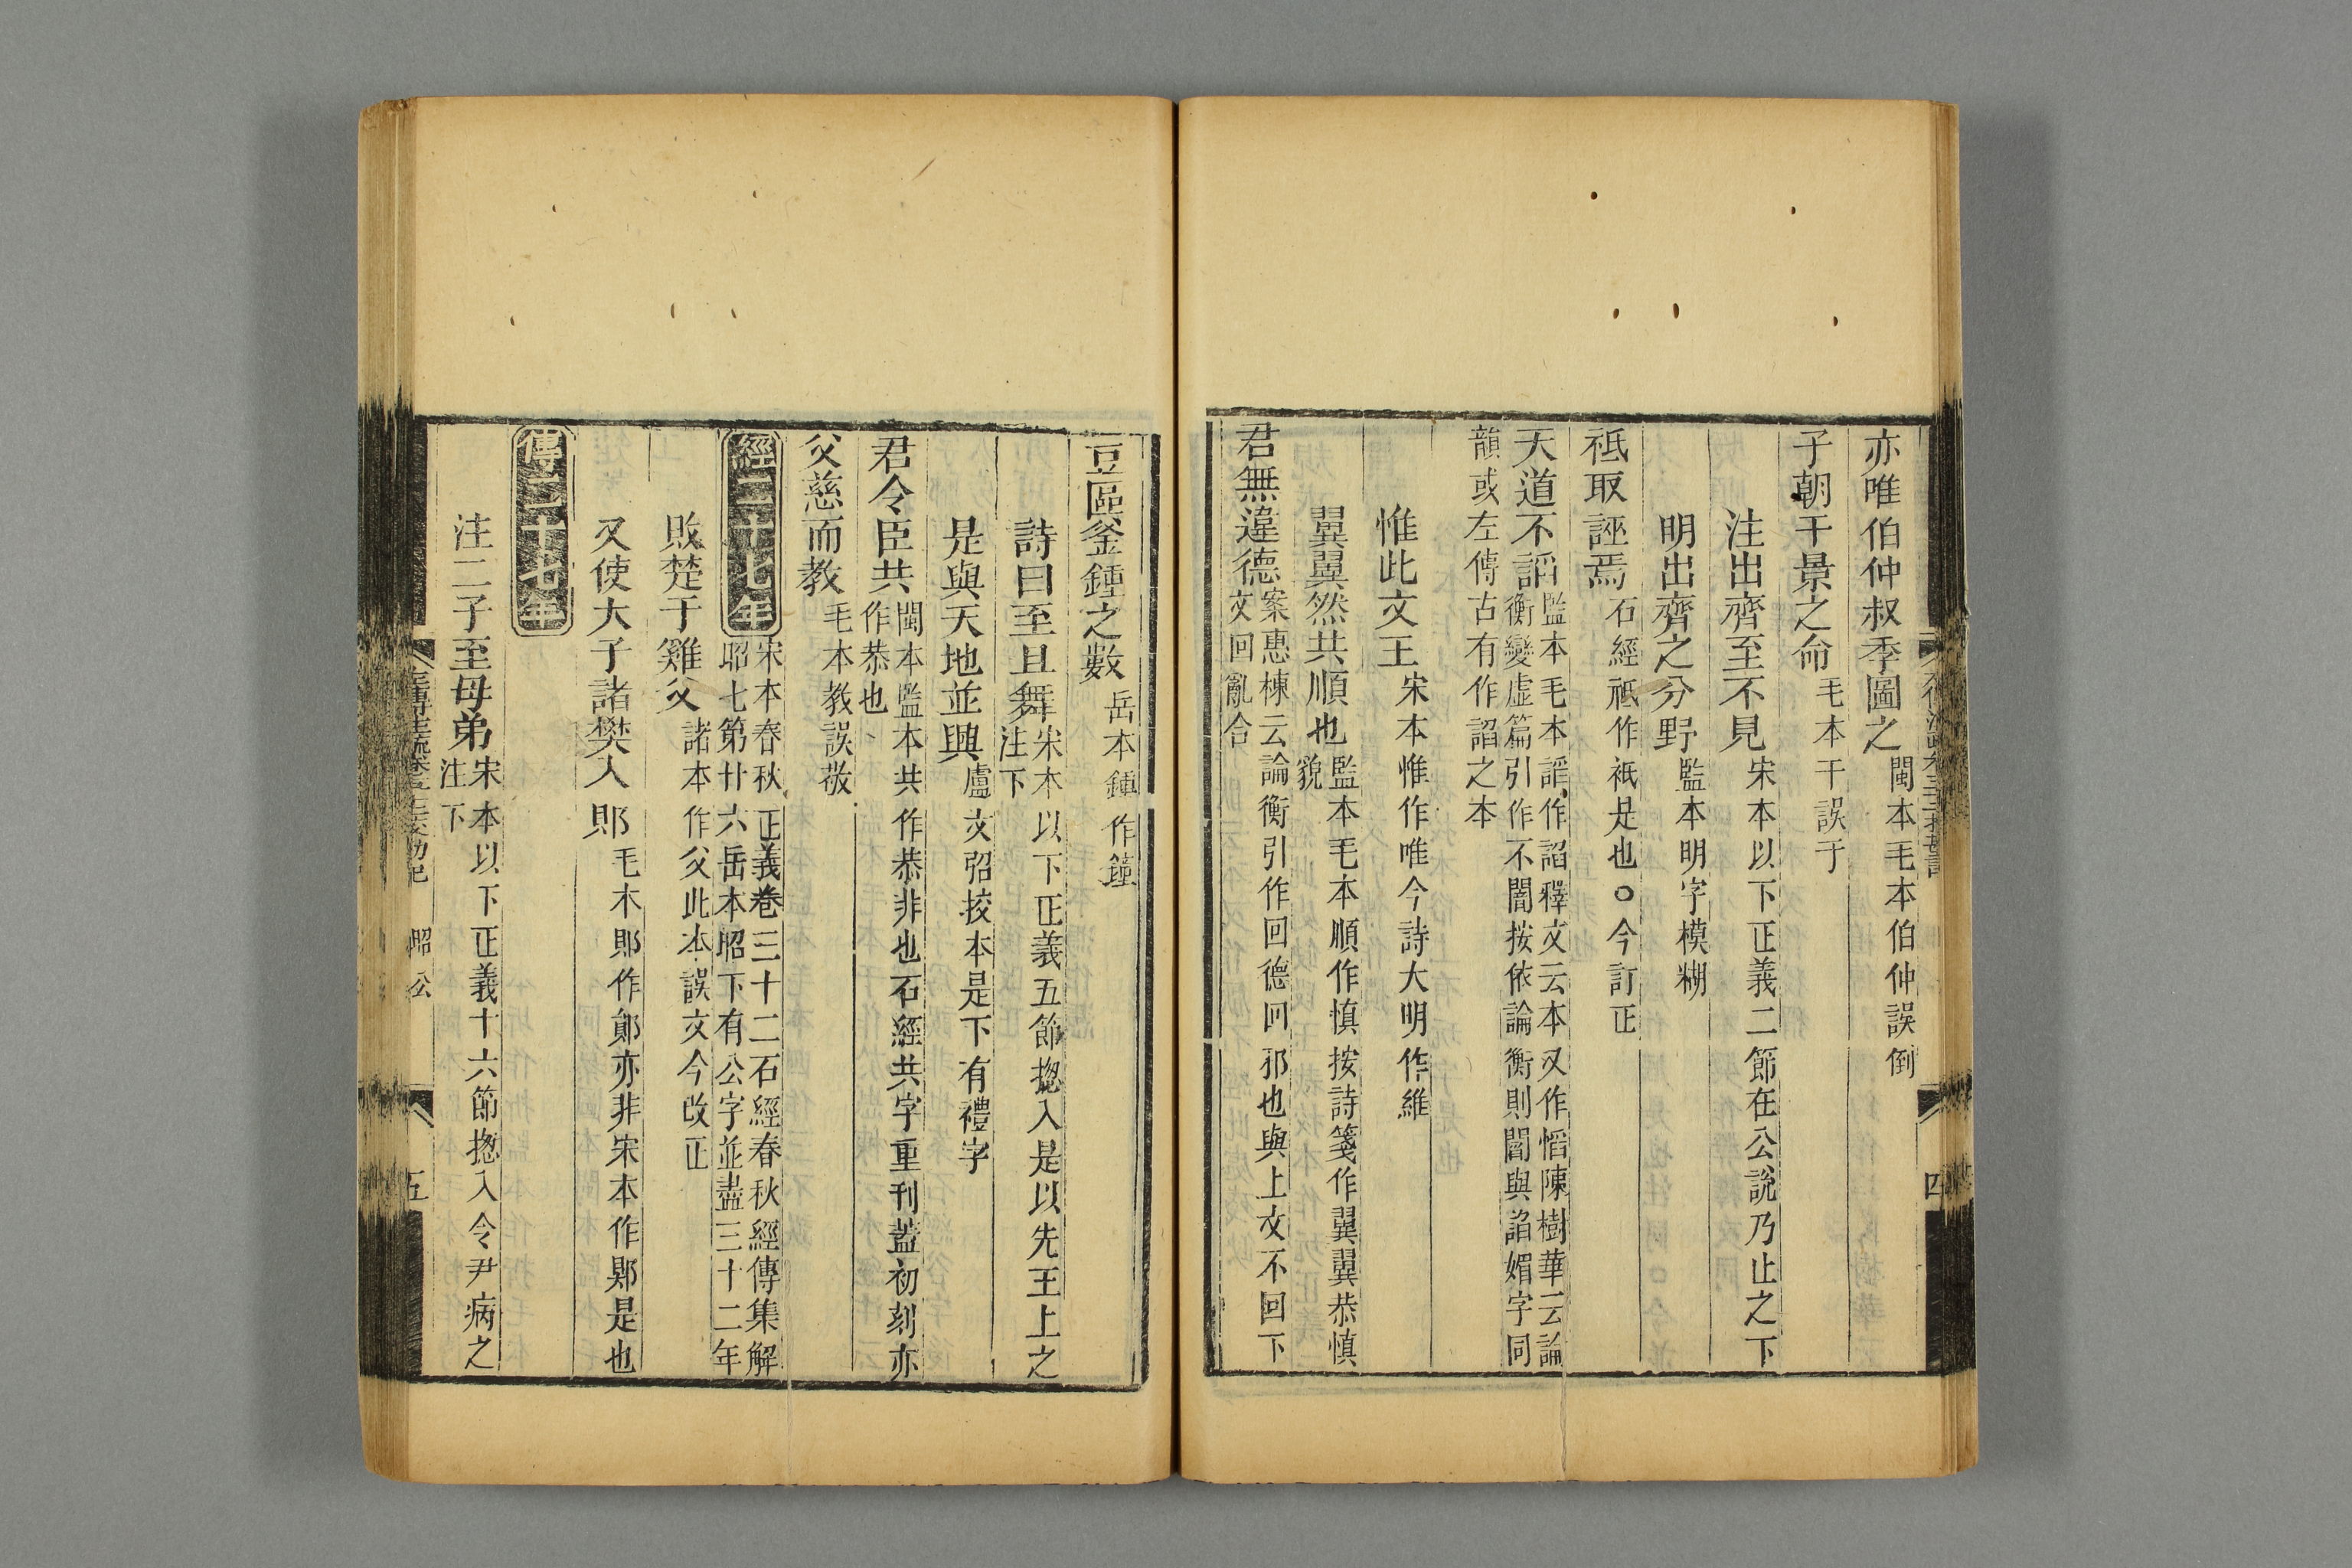 亦唯伯仲叔季圖之閩本毛本伯仲誤倒
子朝干景之命毛本干誤于
注出齊至不見宋本以下正義二節在公說乃止之下
明出齊之分野監本明字模糊
祗取誣焉石經祗作祇是也○今訂正
天道不謟監本毛本謟作諂釋文云本又作慆陳樹華云論
衡變虛篇引作不闇按依論衡則闇與諂媚字同
韻或左傳古有作諂之本
惟此文王宋本惟作唯今詩大明作維
翼翼然共順也監本毛本順作慎按詩箋作翼翼恭慎
貌
君無違德案惠棟云論衡引作回德回邪也與上文不回下
文回亂合
豆區釜鍾之數岳本鍾作鐘
詩曰至且舞宋本以下正義五節揔入是以先王上之
注下
是與天地並興盧文弨挍本是下有禮字
君令臣共閩本監本共作恭非也石經共字重刊蓋初刻亦
作恭也
父慈而教毛本教誤敬
經二十七年宋本春秋正義卷三十二石經春秋經傳集解
昭七第廿六岳本昭下有公字並盡三十二年
敗楚于雞父諸本作父此本誤文今改正
又使大子諸樊入郹毛本郹作鄍亦非宋本作郹是也
傳二十七年
注二子至母弟宋本以下正義十六節揔入令尹病之
注下
昭公
五
四